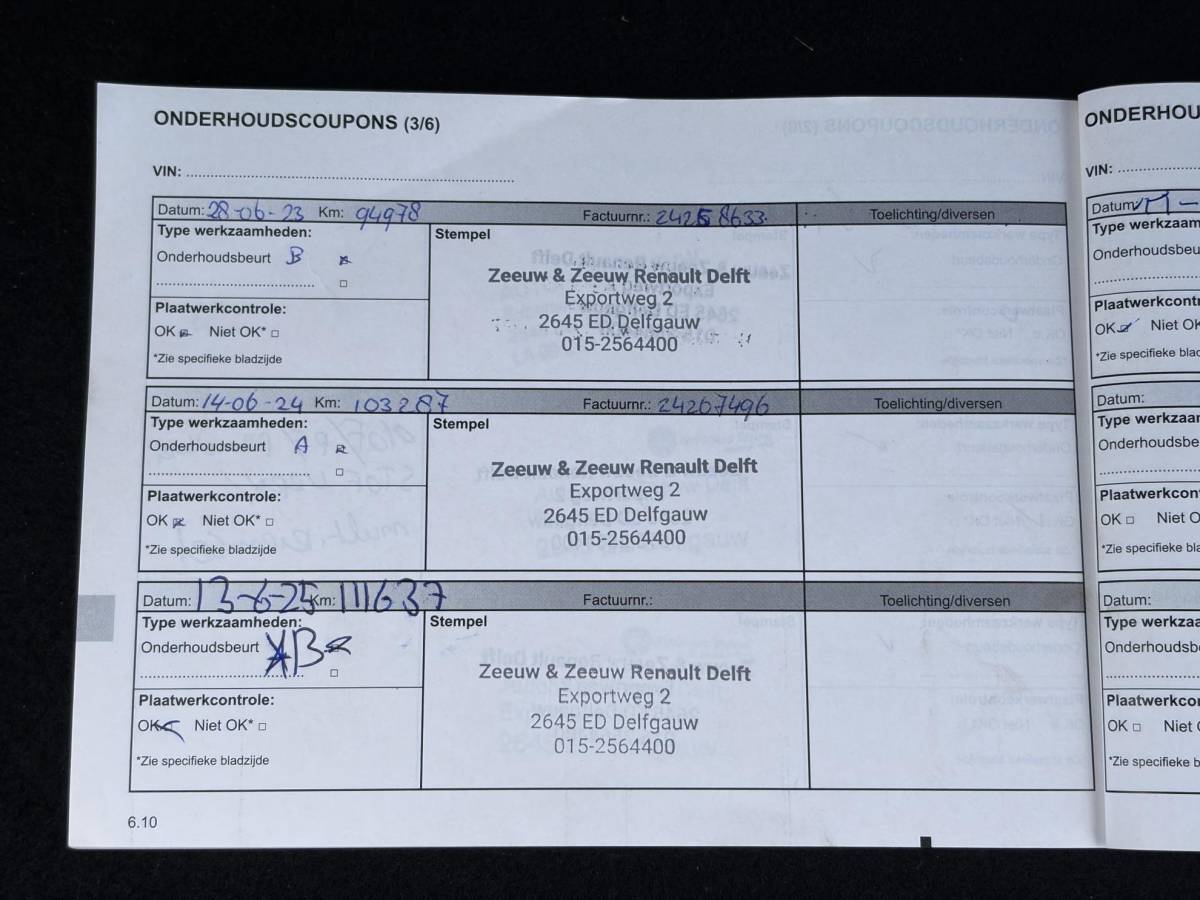 ONDERHOUDSCOUPONS (3/6)
VIN:
Datum: 28-06-23 Km: 94978 Factuurnr.: Toelichting/diversen
Type werkzaamheden: Stempel
Onderhoudsbeurt B
Zeeuw & Zeeuw Renault Delft
Exportweg 2
2645 ED Delfgauw
015-2564400
Plaatwerkcontrole:
OK Niet OK* □
*Zie specifieke bladzijde
Datum: 14-06-24 Km: 103287 Factuurnr.: 24267496 Toelichting/diversen
Type werkzaamheden: Stempel
Onderhoudsbeurt A
Zeeuw & Zeeuw Renault Delft
Exportweg 2
2645 ED Delfgauw
015-2564400
Plaatwerkcontrole:
OK Niet OK* □
*Zie specifieke bladzijde
Datum: 13-6-25 Km: 111637 Factuurnr.: Toelichting/diversen
Type werkzaamheden: Stempel
Onderhoudsbeurt B
Zeeuw & Zeeuw Renault Delft
Exportweg 2
2645 ED Delfgauw
015-2564400
Plaatwerkcontrole:
OK Niet OK* □
*Zie specifieke bladzijde
6.10
ONDERHOU
VIN:
Datum:
Type werkzaam
Onderhoudsbeu
Plaatwerkcontr
OK Niet OK
*Zie specifieke blad
Datum:
Type werkzaam
Onderhoudsbe
Plaatwerkcon
OK □ Niet O
*Zie specifieke bla
Datum:
Type werkzaa
Onderhoudsb
Plaatwerkco
OK □ Niet
*Zie specifieke b